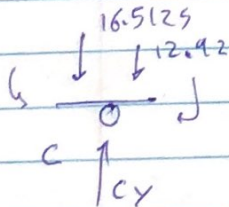 16.5125
12.92
C
Cy